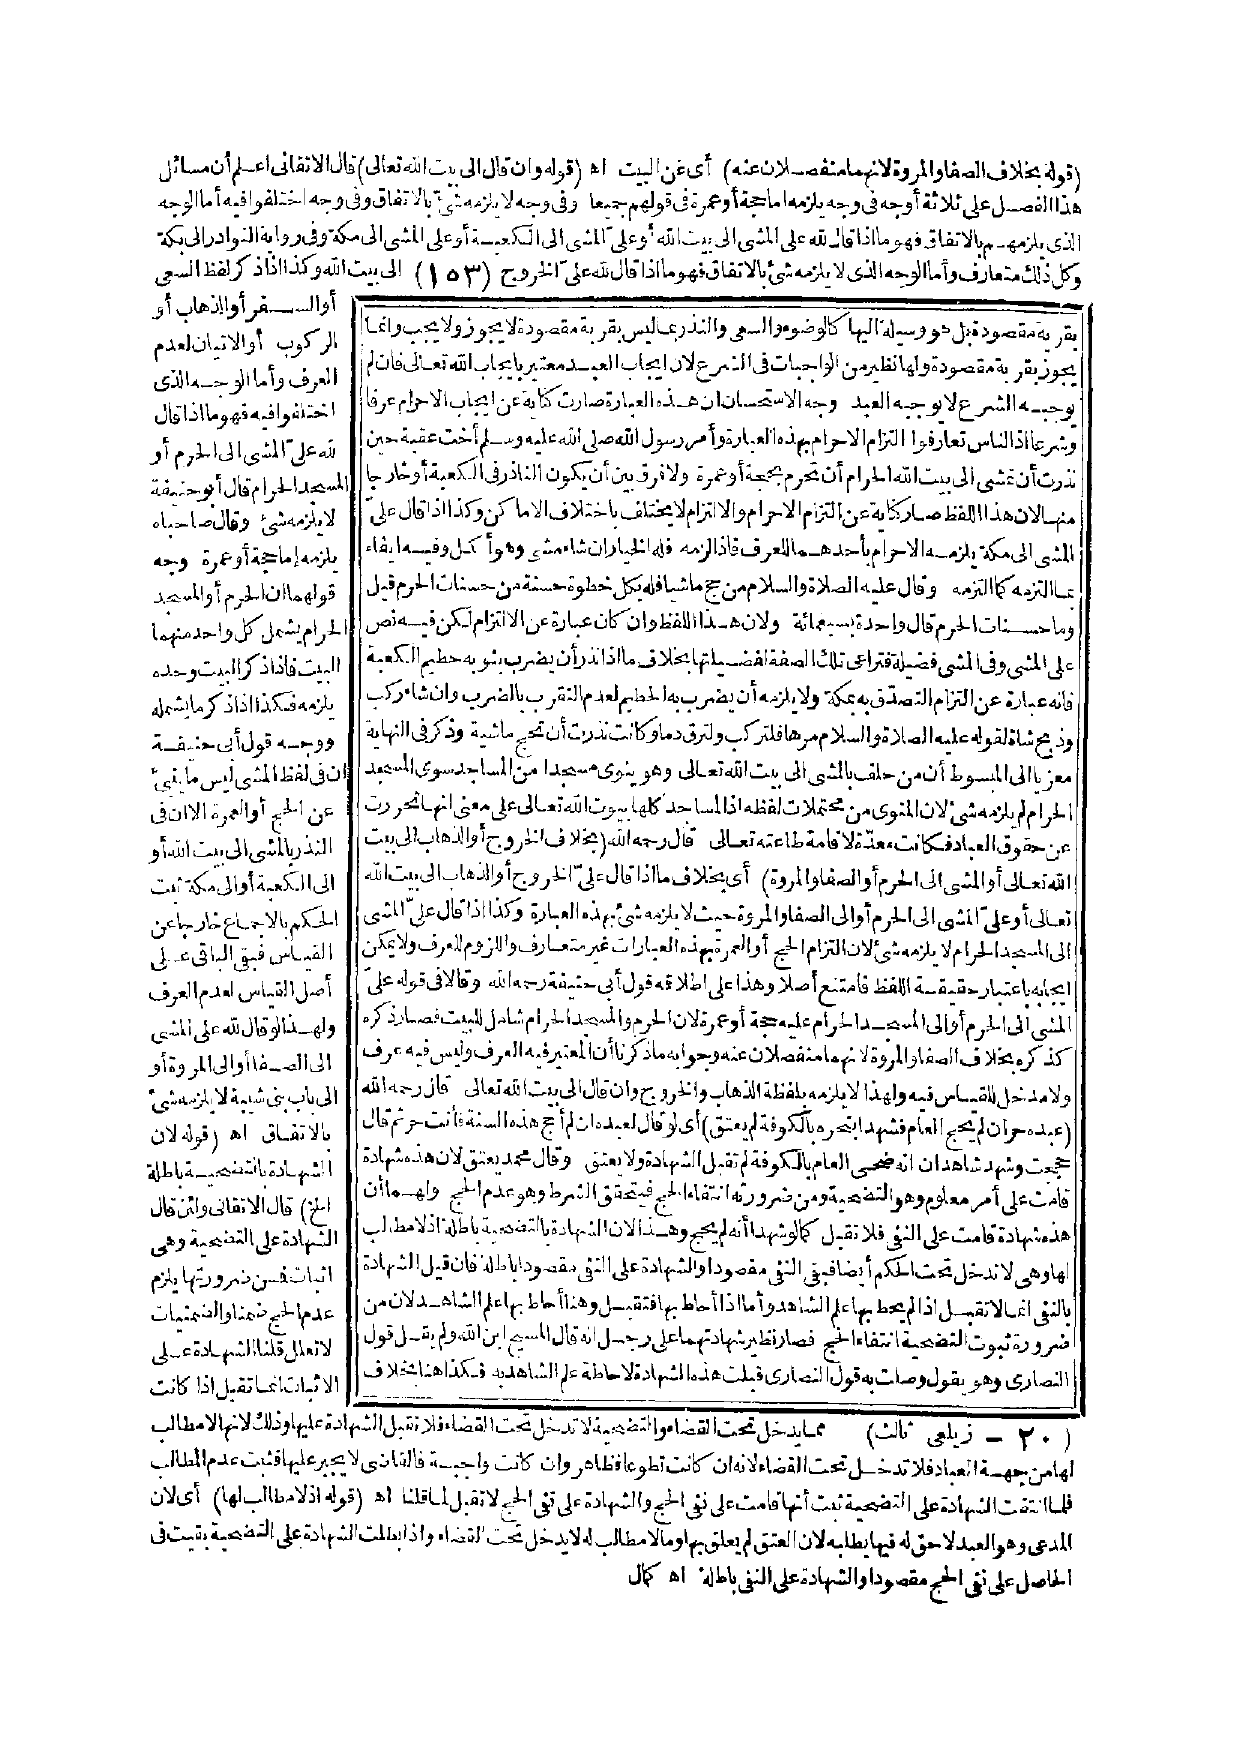 (قوله بخلاف الصفا والمروة لانهما منفصلان عنه) أى عن البيت اه (قوله وان قال الى بيت الله تعالى) قال الاتقانى اعلم أن مسائل
هذا الفصل على ثلاثة أوجه فى وجه يلزمه اما حجة أو عمرة فى قولهم جميعا وفى وجه لا يلزمه شئ بالاتفاق وفى وجه اختلفوا فيه أما الوجه
الذى يلزمهم بالاتفاق فهو ما اذا قال لله على المشى الى بيت الله أو على المشى الى الكعبة أو على المشى الى مكة وفى رواية النوادر الى بكة
وكل ذلك متعارف وأما الوجه الذى لا يلزمه شئ بالاتفاق فهو ما اذا قال لله علىّ الخروج (١٥٣) الى بيت الله وكذا اذا ذكر لفظ السعى
أو السفر أو الذهاب أو
الركوب أو الاتيان لعدم
العرف وأما الوجه الذى
اختلفوا فيه فهو ما اذا قال
لله علىّ المشى الى الحرم أو
المسجد الحرام قال أبو حنيفة
لا يلزمه شئ وقال صاحباه
يلزمه إما حجة أو عمرة وجه
قولهما ان الحرم أو المسجد
الحرام يشمل كل واحد منهما
البيت فاذا ذكر البيت وحده
يلزمه فكذا اذا ذكر ما يشمله
ووجه قول أبى حنيفة
ان فى لفظ المشى ليس ما ينبئ
عن الحج أو العمرة الا ان فى
النذر بالمشى الى بيت الله أو
الى الكعبة أو الى مكة ثبت
الحكم بالاجماع خارجا عن
القياس فبقى الباقى على
أصل القياس لعدم العرف
ولهذا لو قال لله على المشى
الى الصفا أو الى المروة أو
الى باب بنى شيبة لا يلزمه شئ
بالاتفاق اه (قوله لان
الشهادة بالتضحية باطلة
الخ) قال الاتقانى ولئن قال
الشهادة على التضحية وهى
اثبات فمن ضرورتها يلزم
عدم الحج ضمنا والضمنيات
لا تعلل قلنا الشهادة على
الاثبات انما تقبل اذا كانت
يقربة مقصودة بل هو وسيلة اليها كالوضوء والسعى والنذر بما ليس بقربة مقصودة لا يجوز ولا يجب وانما
يجوز بقربة مقصودة ولها نظير من الواجبات فى الشرع لان ايجاب العبد معتبر بايجاب الله تعالى فان لم
يوجبه الشرع لا يوجبه العبد وجه الاستحسان ان هذه العبارة صارت كناية عن ايجاب الاحرام عرفا
وشرعا اذ الناس تعارفوا التزام الاحرام بهذه العبارة وأمر رسول الله صلى الله عليه وسلم أخت عقبة حين
نذرت أن تمشى الى بيت الله الحرام أن تحرم بحجة أو عمرة ولا فرق بين أن يكون الناذر فى الكعبة أو خارجا
منها لان هذا اللفظ صار كناية عن التزام الاحرام والالتزام لا يختلف باختلاف الاماكن وكذا اذا قال علىّ
المشى الى مكة يلزمه الاحرام بأحدهما للعرف فاذا لزمه فله الخيار ان شاء مشى وهو أكمل وفيه ايفاء
بما التزمه كما التزمه وقال عليه الصلاة والسلام من حج ماشيا فله بكل خطوة حسنة من حسنات الحرم قيل
وما حسنات الحرم قال واحدة بسبعمائة ولان هذا اللفظ وان كان عبارة عن الالتزام لكن فيه نص
على المشى وفى المشى فضيلة فتراعى تلك الصفة لفضيلتها بخلاف ما اذا نذر أن يضرب بثوبه حطيم الكعبة
فانه عبارة عن التزام التصدق به بمكة ولا يلزمه أن يضرب به الحطيم لعدم التقرب بالضرب وان شاء ركب
وذبح شاة لقوله عليه الصلاة والسلام مرها فلتركب ولترق دما وكانت نذرت أن تحج ماشية وذكر فى النهاية
معزيا الى المبسوط أن من حلف بالمشى الى بيت الله تعالى وهو ينوى مسجدا من المساجد سوى المسجد
الحرام لم يلزمه شئ لان المنوى من محتملات لفظه اذ المساجد كلها بيوت الله تعالى على معنى انها تحررت
عن حقوق العباد فكانت معدة لاقامة طاعته تعالى قال رحمه الله (بخلاف الخروج أو الذهاب الى بيت
الله تعالى أو المشى الى الحرم أو الصفا والمروة) أى بخلاف ما اذا قال علىّ الخروج أو الذهاب الى بيت الله
تعالى أو علىّ المشى الى الحرم أو الى الصفا والمروة حيث لا يلزمه شئ بهذه العبارة وكذا اذا قال علىّ المشى
الى المسجد الحرام لا يلزمه شئ لان التزام الحج أو العمرة بهذه العبارات غير متعارف واللزوم للعرف ولا يمكن
ايجابه باعتبار حقيقة اللفظ فامتنع أصلا وهذا على اطلاقه قول أبى حنيفة رحمه الله وقالا فى قوله علىّ
المشى الى الحرم أو الى المسجد الحرام عليه حجة أو عمرة لان الحرم والمسجد الحرام شامل للبيت فصار ذكره
كذكره بخلاف الصفا والمروة لانهما منفصلان عنه وجوابه ما ذكرنا أن المعتبر فيه العرف وليس فيه عرف
ولا مدخل للقياس فيه ولهذا لا يلزمه بلفظة الذهاب والخروج وان قال الى بيت الله تعالى قال رحمه الله
(عبده حر ان لم يحج العام فشهدا بنحره بالكوفة لم يعتق) أى لو قال لعبده ان لم أحج هذه السنة فأنت حر ثم قال
حججت وشهد شاهدان انه ضحى العام بالكوفة لم تقبل الشهادة ولا يعتق وقال محمد يعتق لان هذه شهادة
قامت على أمر معلوم وهو التضحية ومن ضرورته انتفاء الحج فيتحقق الشرط وهو عدم الحج ولهما أن
هذه شهادة قامت على النفى فلا تقبل كما لو شهدا أنه لم يحج وهذا لان الشهادة بالتضحية باطلة اذ لا مطالب
لها وهى لا تدخل تحت الحكم أيضا فبقى النفى مقصودا والشهادة على النفى مقصودا باطلة فان قيل الشهادة
بالنفى انما لا تقبل اذا لم يحط بها علم الشاهد وأما اذا أحاط بها فتقبل وهنا أحاط بها علم الشاهد لان من
ضرورة ثبوت التضحية انتفاء الحج فصار نظير شهادتهما على رجل انه قال المسيح ابن الله ولم يقل قول
النصارى وهو يقول وصلت به قول النصارى قبلت هذه الشهادة لاحاطة علم الشاهد به فكذا هنا بخلاف
(٢٠ - زيلعى ثالث) مما يدخل تحت القضاء والتضحية لا تدخل تحت القضاء فلا تقبل الشهادة عليها وذلك لانها لا مطالب
لها من جهة العباد فلا تدخل تحت القضاء لانه ان كانت تطوعا فظاهر وان كانت واجبة فالقاضى لا يجبر عليها فثبت عدم المطالب
فلما انتفت الشهادة على التضحية ثبت أنها قامت على نفى الحج والشهادة على نفى الحج لا تقبل لما قلنا اه (قوله اذ لا مطالب لها) أى لان
المدعى وهو العبد لا حق له فيها يطلبه لان العتق لم يعلق بها وما لا مطالب له لا يدخل تحت القضاء واذا بطلت الشهادة على التضحية بقيت فى
الحاصل على نفى الحج مقصودا والشهادة على النفى باطلة اه كمال